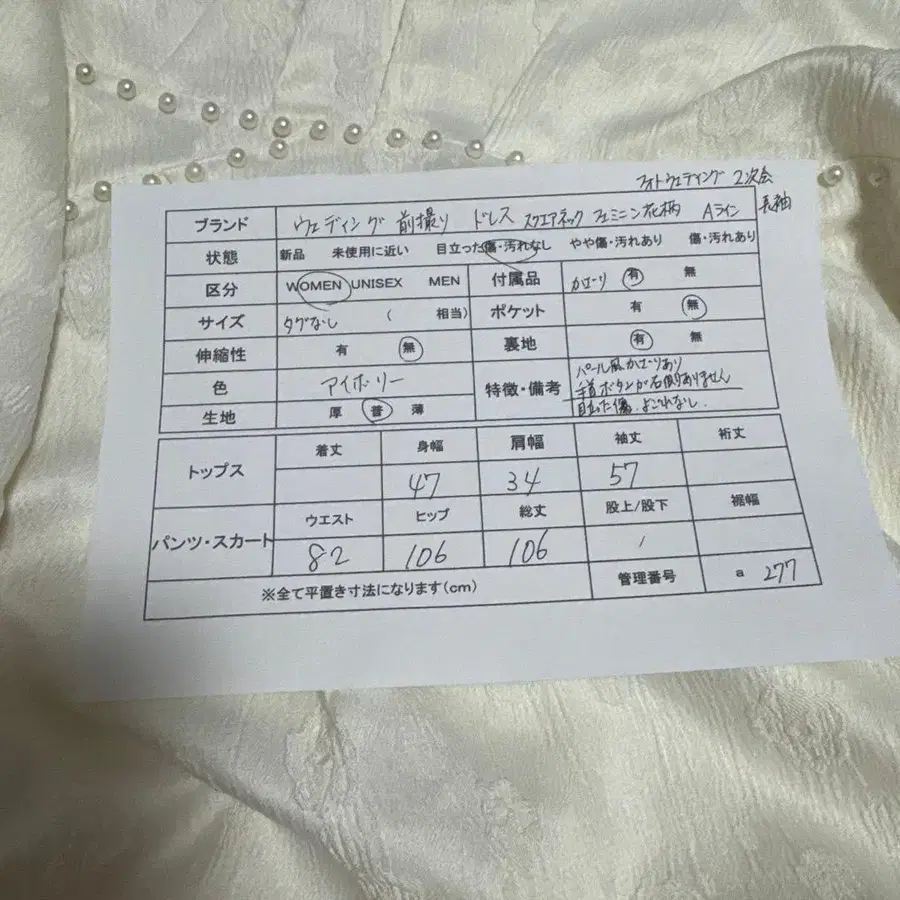 フォトウェディング 2次会
ブランド ウェディング 前撮り ドレス スクエアネック フェミニン花柄 Aライン 長袖
状態 新品 未使用に近い 目立った傷・汚れなし やや傷・汚れあり 傷・汚れあり
区分 WOMEN UNISEX MEN 付属品 かざり 有 無
サイズ タグなし ( 相当) ポケット 有 無
伸縮性 有 無 裏地 有 無
色 アイボリー 特徴・備考 パール風かざりあり
手首ボタンが右側ありません
目立った傷、よごれなし.
生地 厚 普 薄
トップス 着丈 身幅 肩幅 袖丈 裄丈
47 34 57
パンツ・スカート ウエスト ヒップ 総丈 股上/股下 裾幅
82 106 106 /
※全て平置き寸法になります(cm) 管理番号 a 277